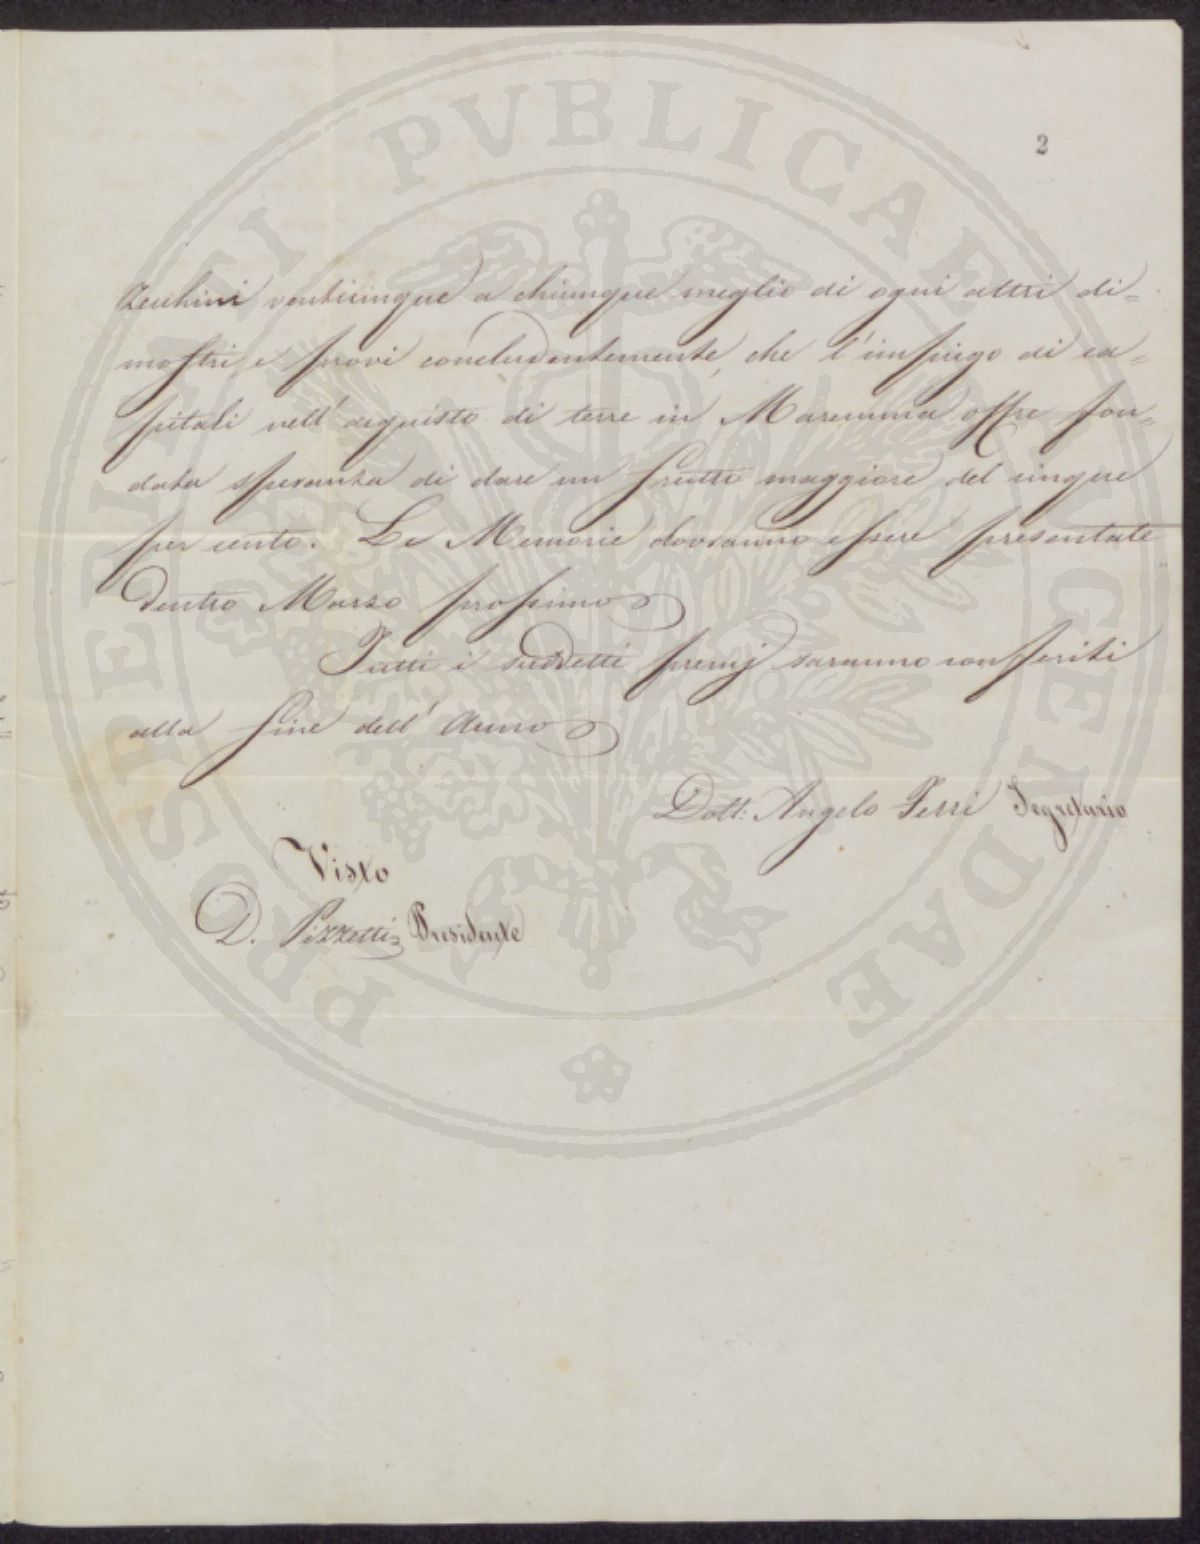 2
Zecchini venticinque a chiunque meglio di ogni altri di=
mostri e provi concludentemente, che l'impiego di ca=
pitali nell'acquisto di terre in Maremma offre fon=
data speranza di dare un frutto maggiore del cinque
per cento. Le Memorie dovranno essere presentate
dentro Marzo prossimo
Tutti i suddetti premj saranno conferiti
alla fine dell'Anno
Dott: Angelo Ferri Segretario
Visto
D. Pizzetti= Presidente
PROSPERITATI PVBLICAE AVGENDAE